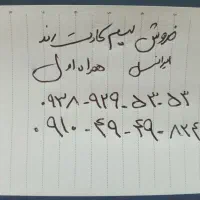 فروش سیم کارت رند
ایرانسل همراه اول
۰۹۳۸-۹۲۹-۵۳-۵۳
۰۹۱۰-۴۹-۴۹-۸۲۴